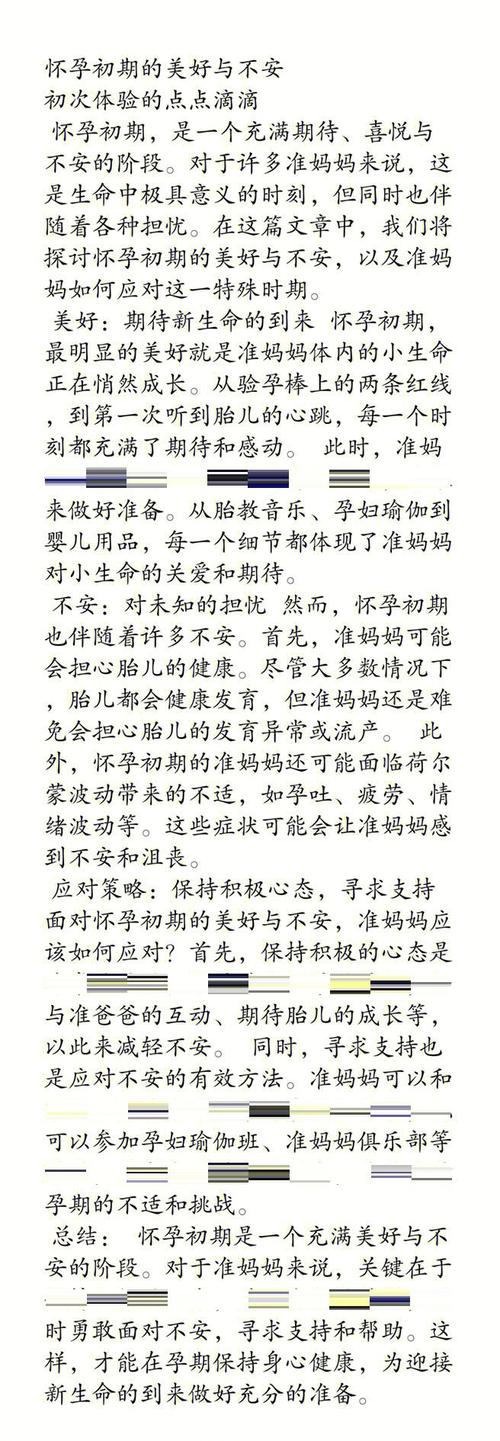 怀孕初期的美好与不安
初次体验的点点滴滴
怀孕初期，是一个充满期待、喜悦与
不安的阶段。对于许多准妈妈来说，这
是生命中极具意义的时刻，但同时也伴
随着各种担忧。在这篇文章中，我们将
探讨怀孕初期的美好与不安，以及准妈
妈如何应对这一特殊时期。
美好：期待新生命的到来 怀孕初期，
最明显的美好就是准妈妈体内的小生命
正在悄然成长。从验孕棒上的两条红线
，到第一次听到胎儿的心跳，每一个时
刻都充满了期待和感动。 此时，准妈
来做好准备。从胎教音乐、孕妇瑜伽到
婴儿用品，每一个细节都体现了准妈妈
对小生命的关爱和期待。
不安：对未知的担忧 然而，怀孕初期
也伴随着许多不安。首先，准妈妈可能
会担心胎儿的健康。尽管大多数情况下
，胎儿都会健康发育，但准妈妈还是难
免会担心胎儿的发育异常或流产。 此
外，怀孕初期的准妈妈还可能面临荷尔
蒙波动带来的不适，如孕吐、疲劳、情
绪波动等。这些症状可能会让准妈妈感
到不安和沮丧。
应对策略：保持积极心态，寻求支持
面对怀孕初期的美好与不安，准妈妈应
该如何应对？首先，保持积极的心态是
与准爸爸的互动、期待胎儿的成长等，
以此来减轻不安。 同时，寻求支持也
是应对不安的有效方法。准妈妈可以和
可以参加孕妇瑜伽班、准妈妈俱乐部等
孕期的不适和挑战。
总结： 怀孕初期是一个充满美好与不
安的阶段。对于准妈妈来说，关键在于
时勇敢面对不安，寻求支持和帮助。这
样，才能在孕期保持身心健康，为迎接
新生命的到来做好充分的准备。